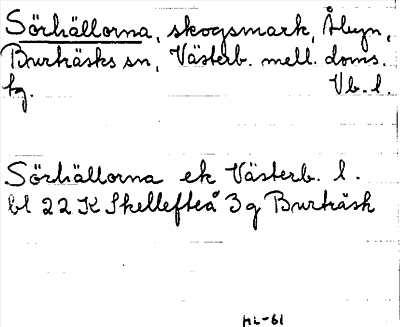 Sörhällorna, skogsmark, Åbyn,
Burträsks sn, Västerb. mell. doms.
tg. Vb. l.
Sörhällorna ek Västerb. l.
bl 22 K Skellefteå 3 g Burträsk
ML-61